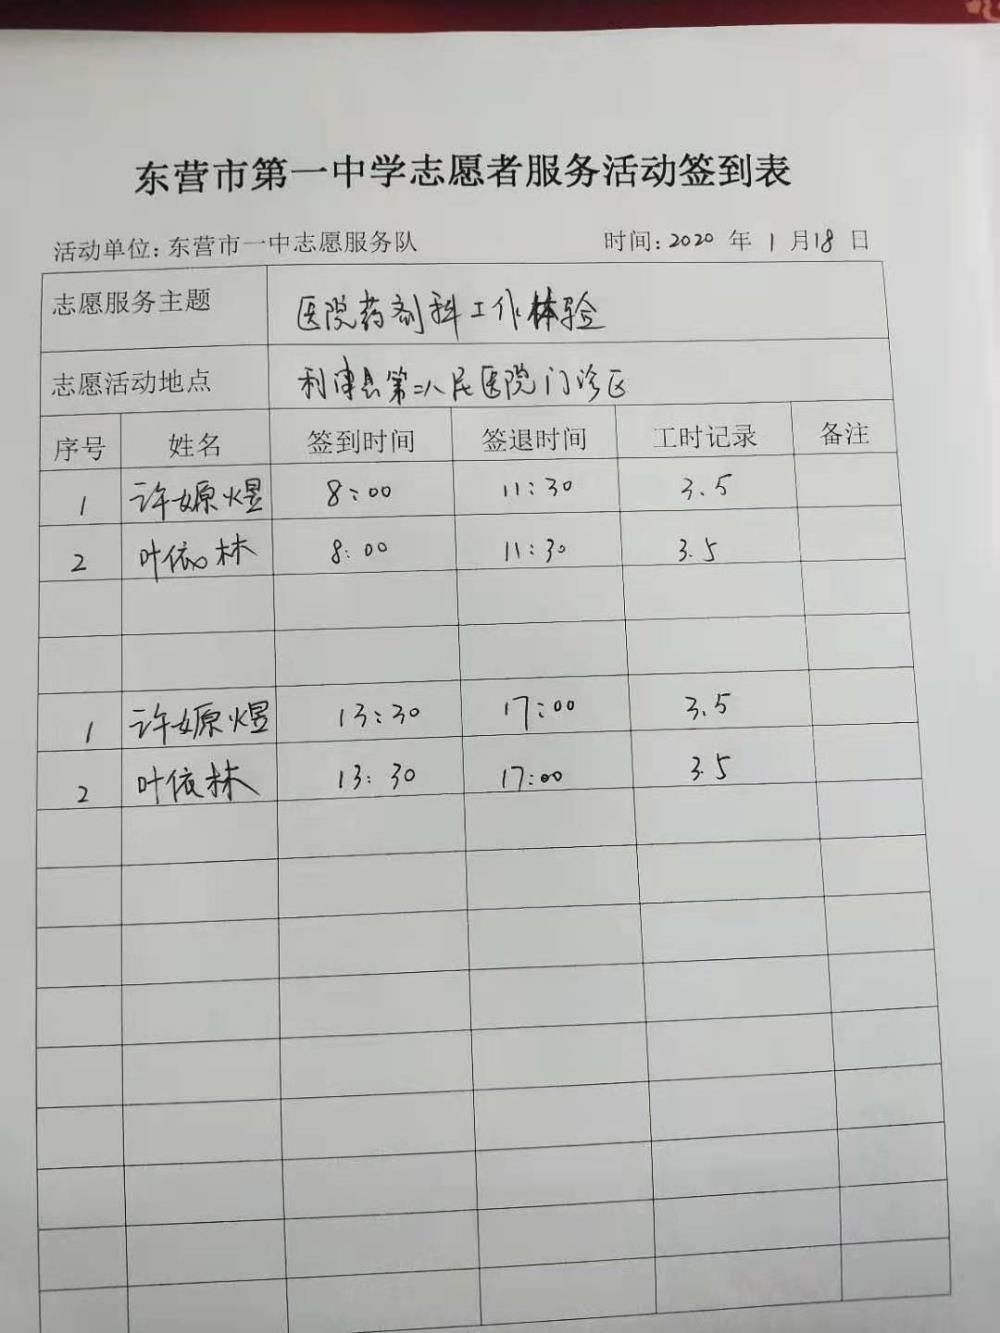 东营市第一中学志愿者服务活动签到表
活动单位:东营市一中志愿服务队 时间:2020 年 1 月18 日
志愿服务主题 医院药剂科工作体验
志愿活动地点 利津县第二人民医院门诊区
序号 姓名 签到时间 签退时间 工时记录 备注
1 许嫄煜 8:00 11:30 3.5
2 叶依林 8:00 11:30 3.5
1 许嫄煜 13:30 17:00 3.5
2 叶依林 13:30 17:00 3.5